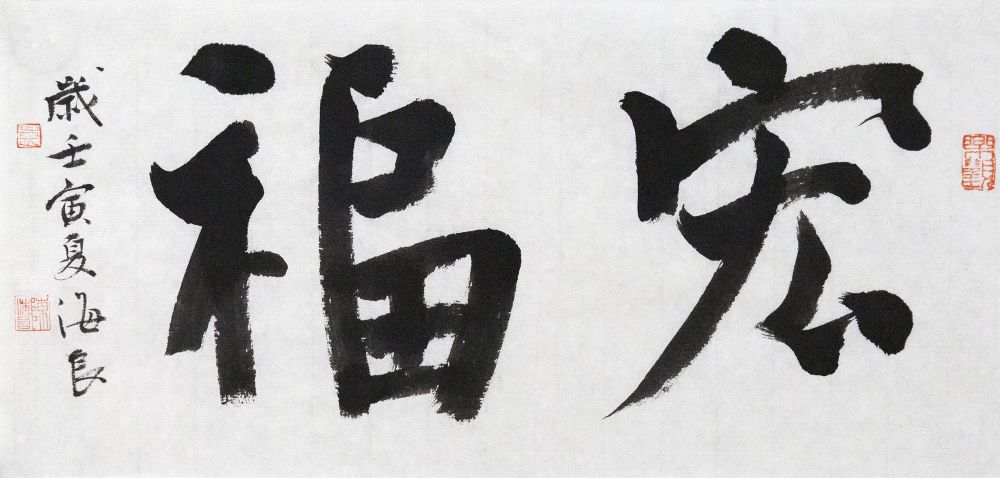 宏福
歲壬寅夏海良